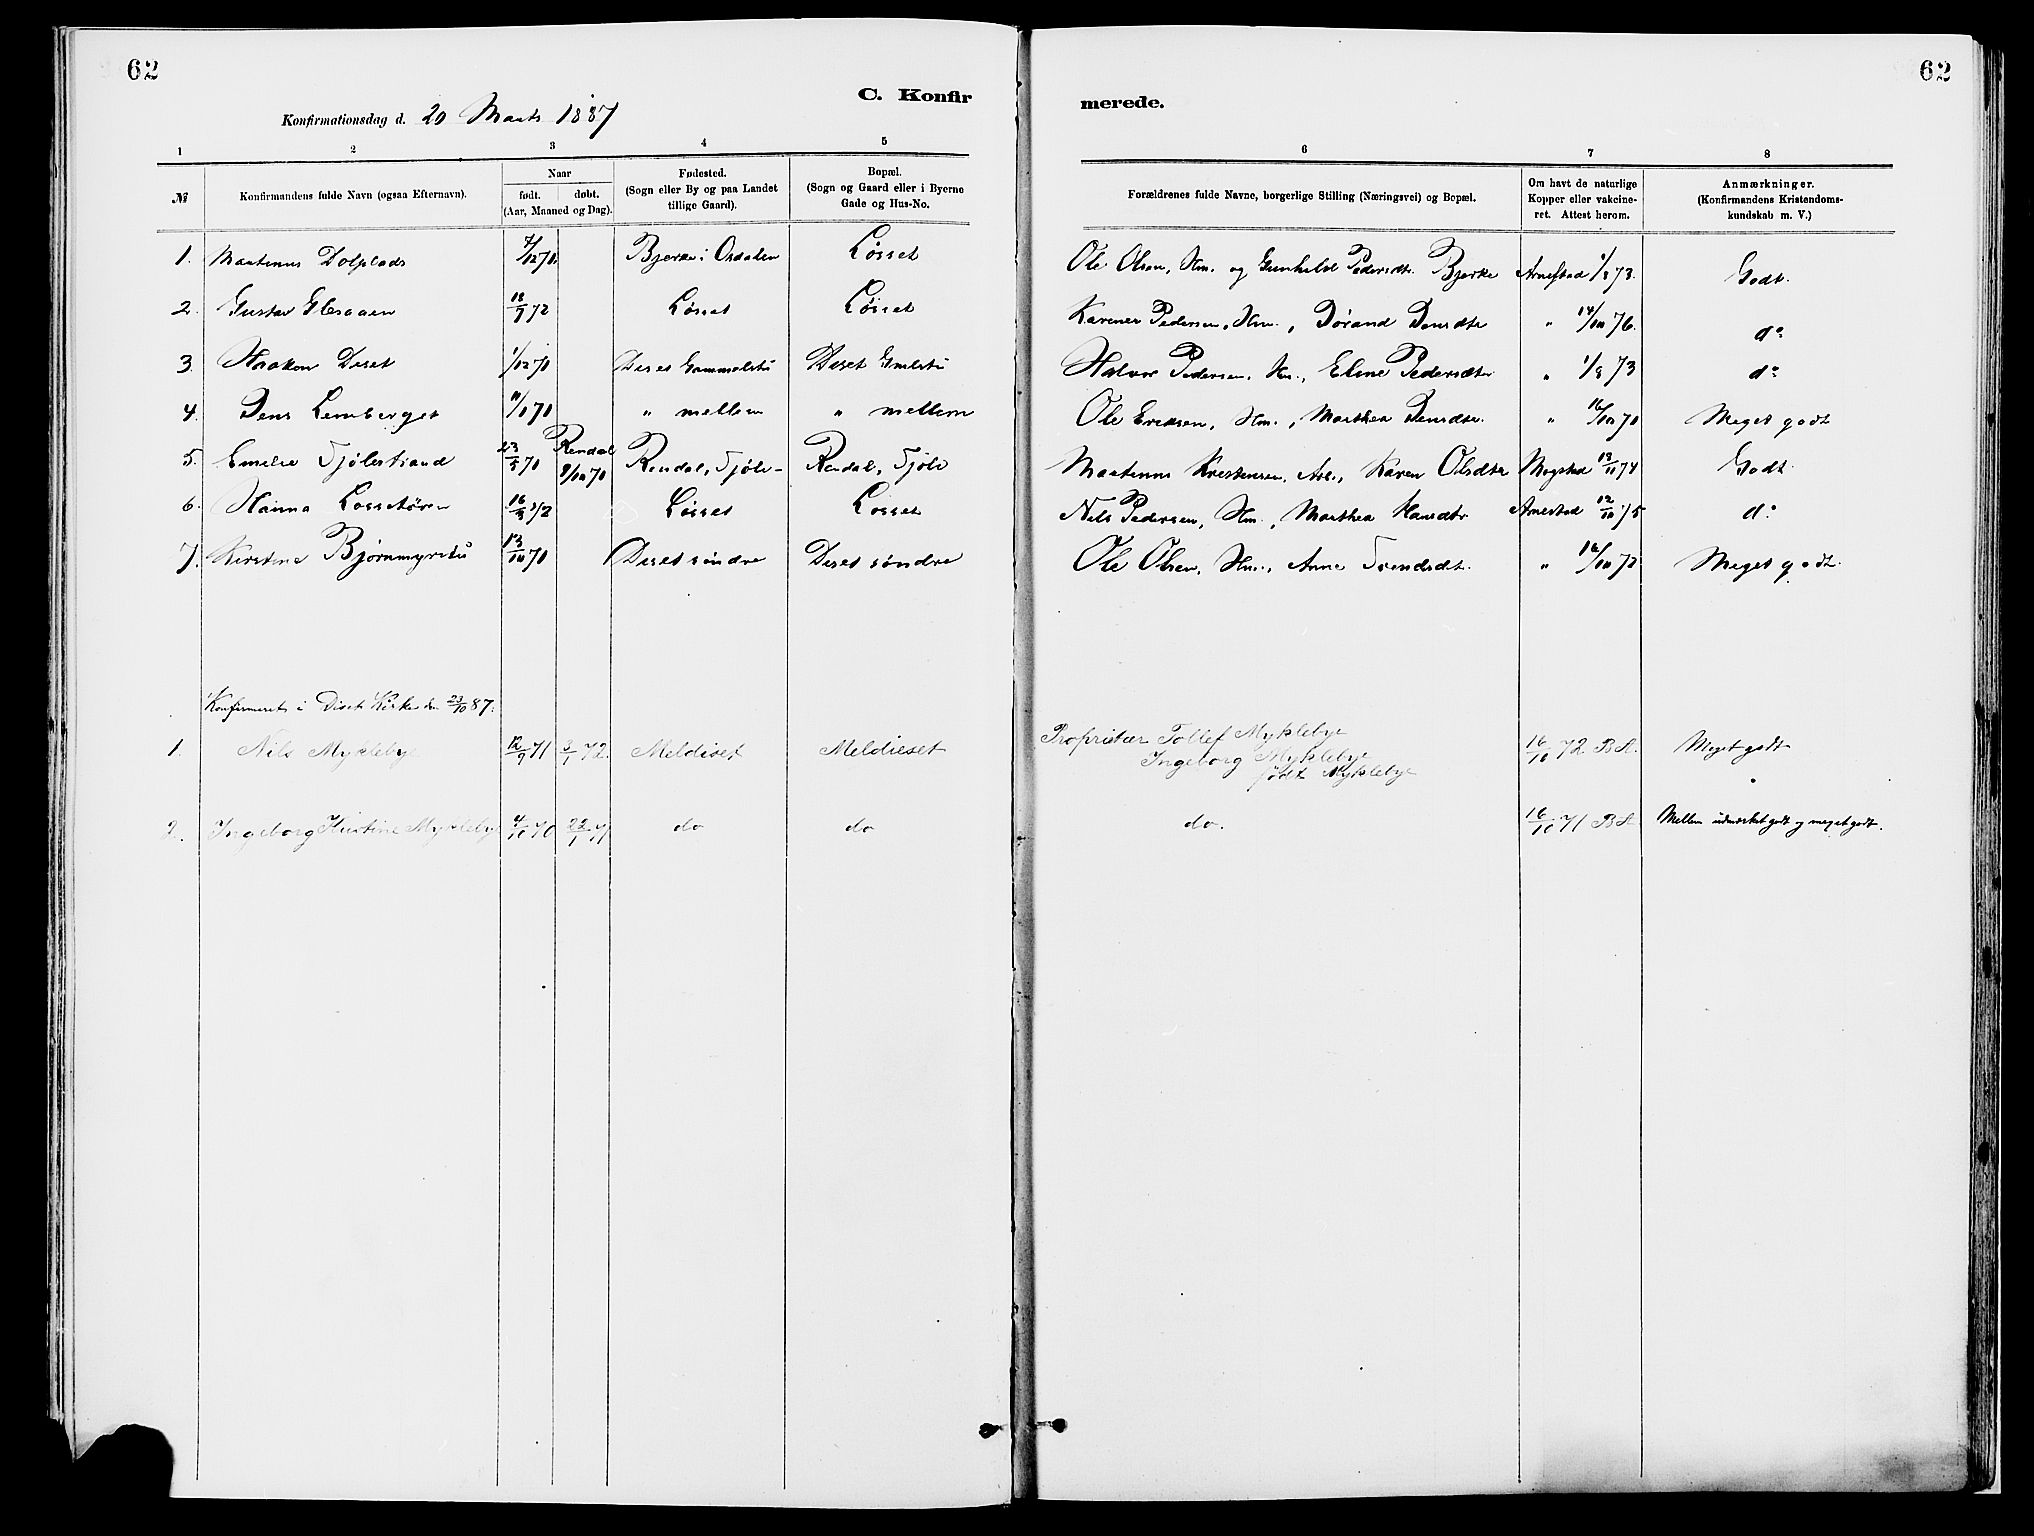 62
62
C. Konfir
merede.
Konfirmationsdag d. 20 Marts 1887
1 2 3 4 5
6 7 8
№ Konfirmandens fulde Navn (ogsaa Efternavn).
Naar
født. døbt.
(Aar, Maaned og Dag).
Fødested.
(Sogn eller By og paa Landet
tillige Gaard).
Bopæl.
(Sogn og Gaard eller i Byerne
Gade og Hus-No.
Forældrenes fulde Navne, borgerlige Stilling (Næringsvei) og Bopæl.
Om havt de naturlige
Kopper eller vakcine-
ret. Attest herom.
Anmærkninger.
(Konfirmandens Kristendoms-
kundskab m. V.)
1. Martinus Dolplads 7/12 70. Bjerke i Osdalen Løsset Ole Olsen, Hm. og Gunhild Pedersdt. Bjerke Arnestad 1/8 73. Godt.
2. Gustav 18/7 72 Løsset Løsset Karener Pedersen, Hm., Jørand Jensdtr " 14/10 76. do
3. Haakon Deset 1/12 70 Deset Gammelstu Deset Gmlstu Halvor Pedersen, Hm., Eline Pedersdtr " 1/8 73 do
4. Jens Lemberget 11/1 70 " mellem " mellem Ole Eriksen, Hm., Marthea Jensdtr. " 16/10 70 Meget godt
5. Emelie Sjølistrand 23/5 70 Rendal 9/10 70 Rendal, Sjøli- Rendal, Sjøli Martinus Kristensen, Arb., Karen Olsdtr Mogstad 13/11 74 Godt.
6. Hanna Løssetøren 16/3 72 Løsset Løsset Nils Pedersen, Hm., Marthea Hansdtr Arnestad 12/10 75 do
7. Kirstine Bjørnmyrstu 13/10 70 Deset søndre Deset søndre Ole Olsen, Hm., Anne Svendsdt. " 16/10 72 Meget godt.
Konfirmeret i Diset Kirke den 23/10 87.
1. Nils Myklebye 12/9 71 3/1 72. Meldiset Meldieset Proprietær Tollef Myklebye 16/10 72 BA. Meget godt
Ingeborg Myklebye
født Myklebye
2. Ingeborg Kristine Myklebye 4/10 70 22/1 71 do do do. 16/10 71 BA Mellem udmærket godt og meget godt.